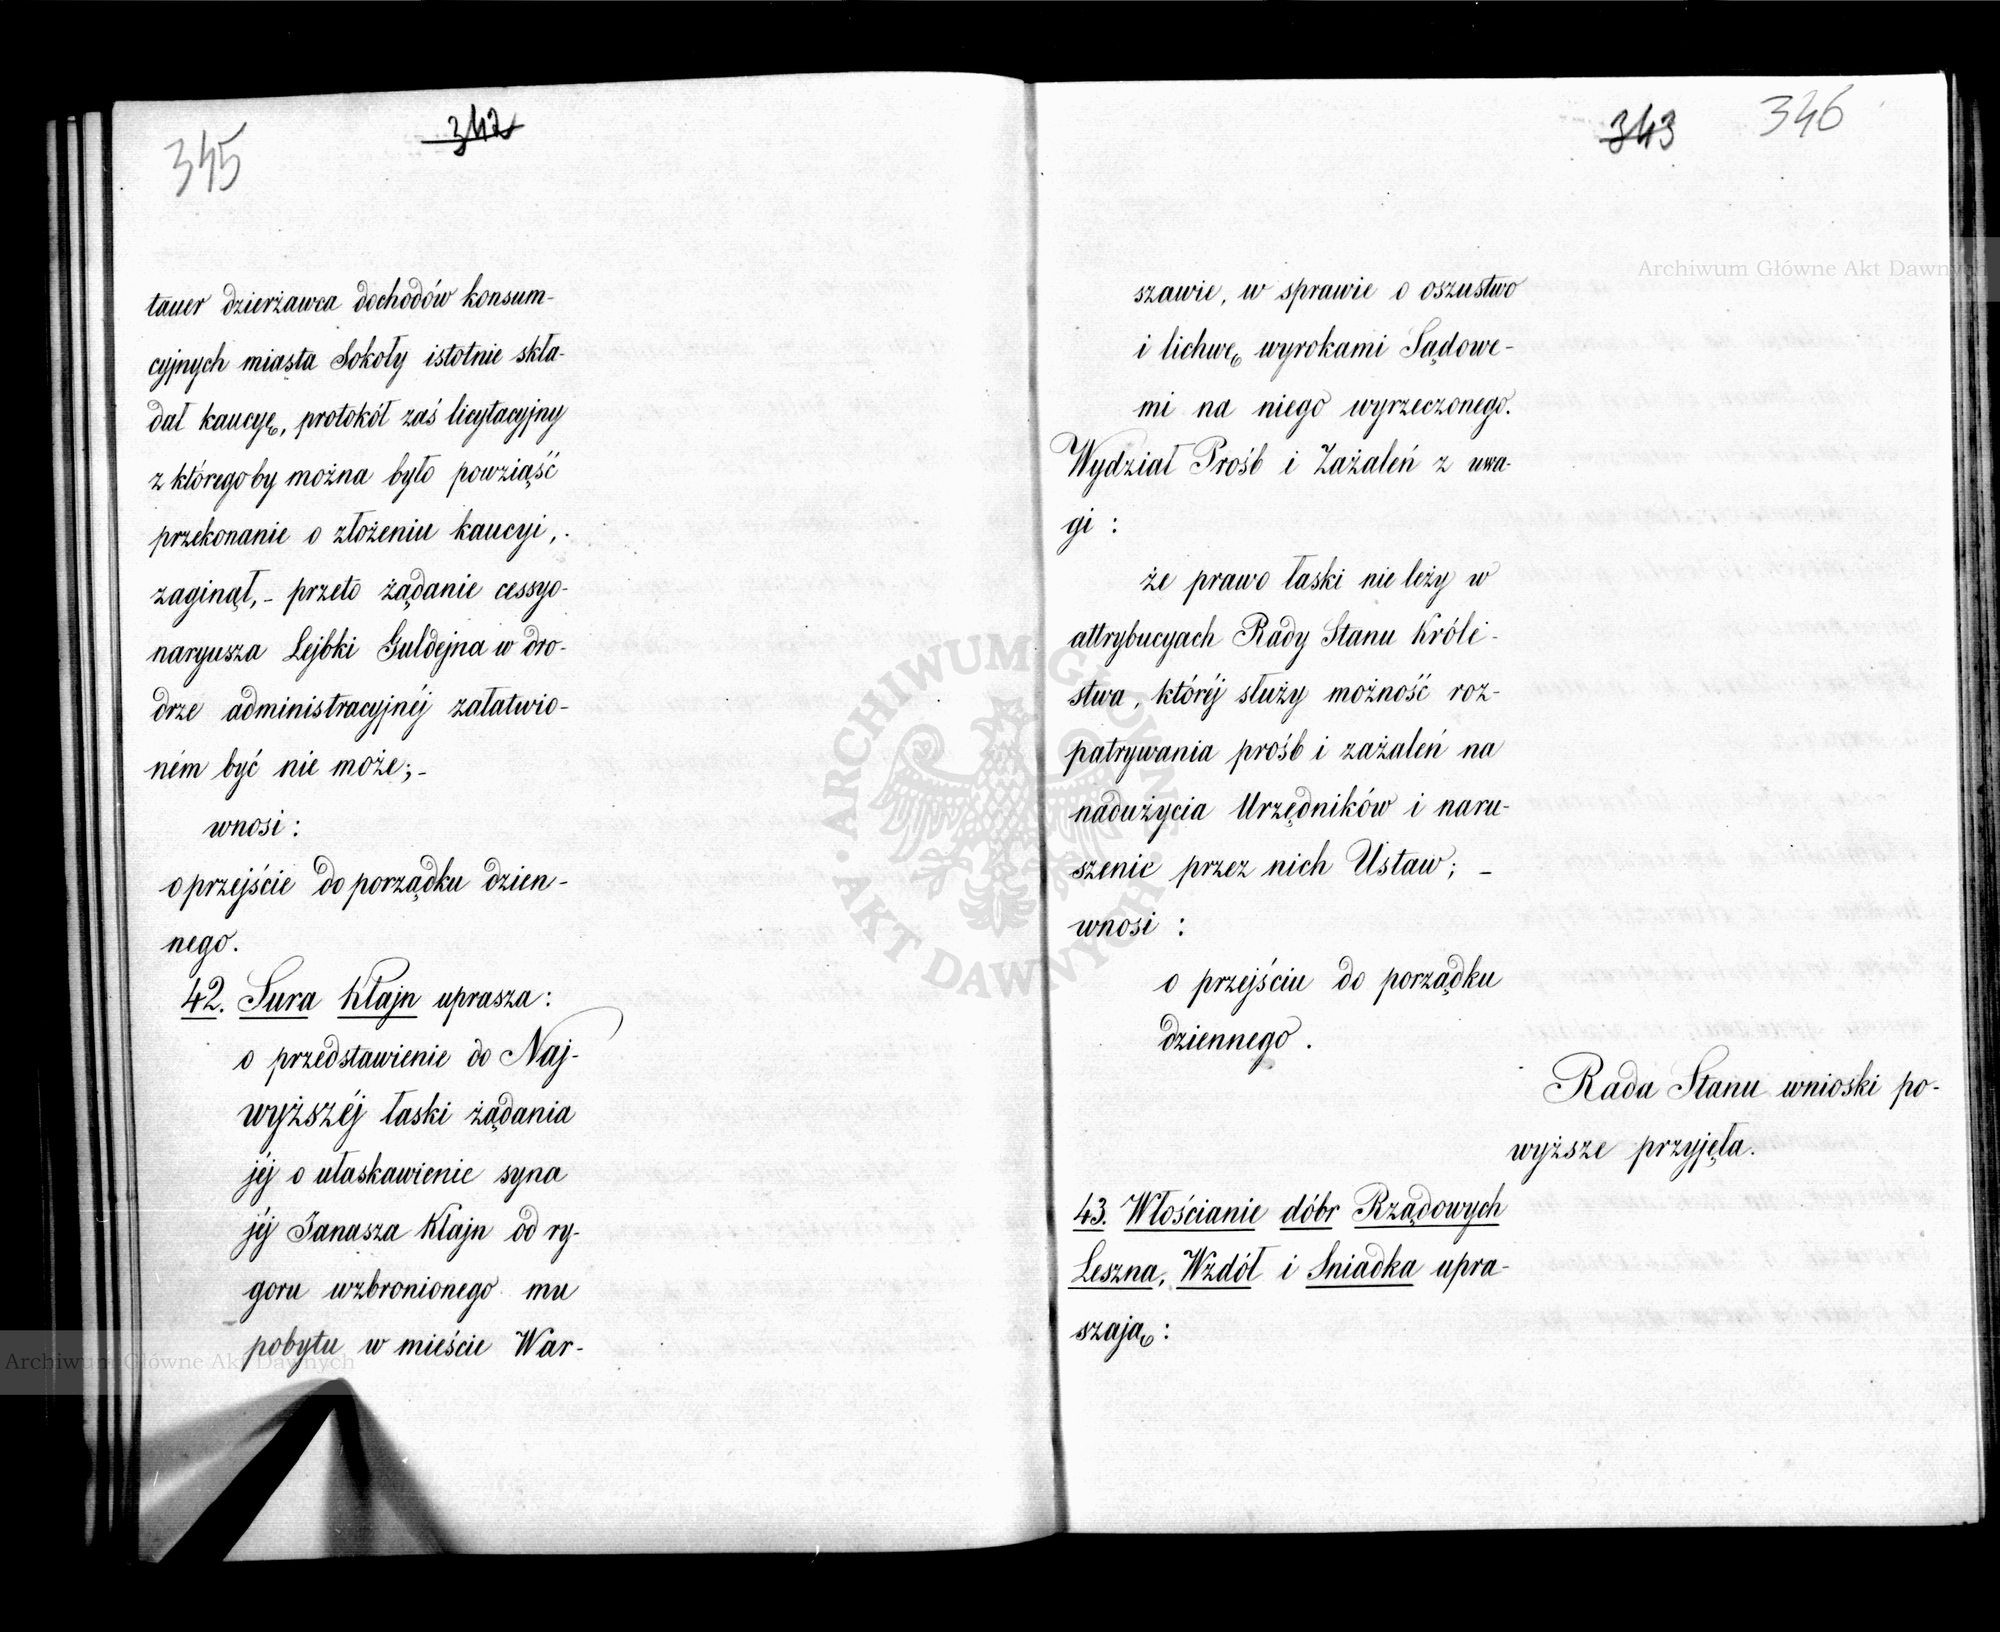 345
342
tauer dzierżawca dochodów konsum-
cyjnych miasta Sokoły istotnie skła-
dał kaucyę, protokół zaś licytacyjny
z któregoby można było powziąść
przekonanie o złożeniu kaucyi,
zaginął, - przeto żądanie cessyo-
naryusza Lejbki Guldejna w dro-
drze administracyjnéj załatwio-
ném być nie może; -
wnosi:
o przejście do porządku dzien-
nego.
42. Sura Kłajn uprasza:
o przedstawienie do Naj-
wyższéj łaski żądania
jéj o ułaskawienie syna
jéj Janasza Kłajn od ry-
goru wzbronionego mu
pobytu w mieście War-
343
346
szawie, w sprawie o oszustwo
i lichwę wyrokami Sądowe-
mi na niego wyrzeczonego.
Wydział Prośb i Zażaleń z uwa-
gi:
że prawo łaski nie leży w
attrybucyach Rady Stanu Króle-
stwa, któréj służy możność roz-
patrywania prośb i zażaleń na
nadużycia Urzędników i naru-
szenie przez nich Ustaw; -
wnosi:
o przejściu do porządku
dziennego.
Rada Stanu wnioski po-
wyższe przyjęła.
43. Włościanie dóbr Rządowych
Leszna, Wzdół i Sniadka upra-
szają:
Archiwum Główne Akt Dawnych
Archiwum Główne Akt Dawnych
ARCHIWUM GŁÓWNE · AKT DAWNYCH ·